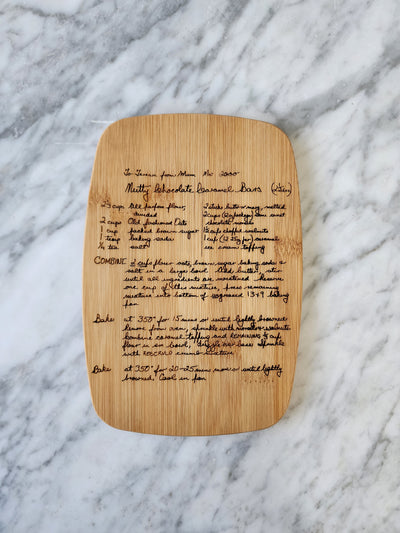 To Tavia from Mum Dec 2000
Nutty Chocolate Caramel Bars
2⅓ cup All purpose flour, 2 sticks butter or marg, melted
divided 2 cups (12oz package) semi sweet
2 cups Old fashioned Oats chocolate morsels
1 cup packed brown sugar ½ cup chopped walnuts
1 teasp baking soda 1 cup (12.25oz jar) caramel
½ tea salt ice cream topping
COMBINE 2 cups flour oats, brown sugar baking soda &
salt in a large bowl. Add butter, stir
until all ingredients are moistened. Reserve
one cup of this mixture, press remaining
mixture into bottom of ungreased 13x9 baking
pan
Bake at 350° for 15 mins or until lightly browned
Remove from oven, sprinkle with morsels & walnuts
Combine caramel topping and REMAINING ⅓ cup
flour in sm bowl, drizzle over base sprinkle
with RESERVED crumb mixture.
Bake at 350° for 20-25 min more or until lightly
browned, Cool in pan